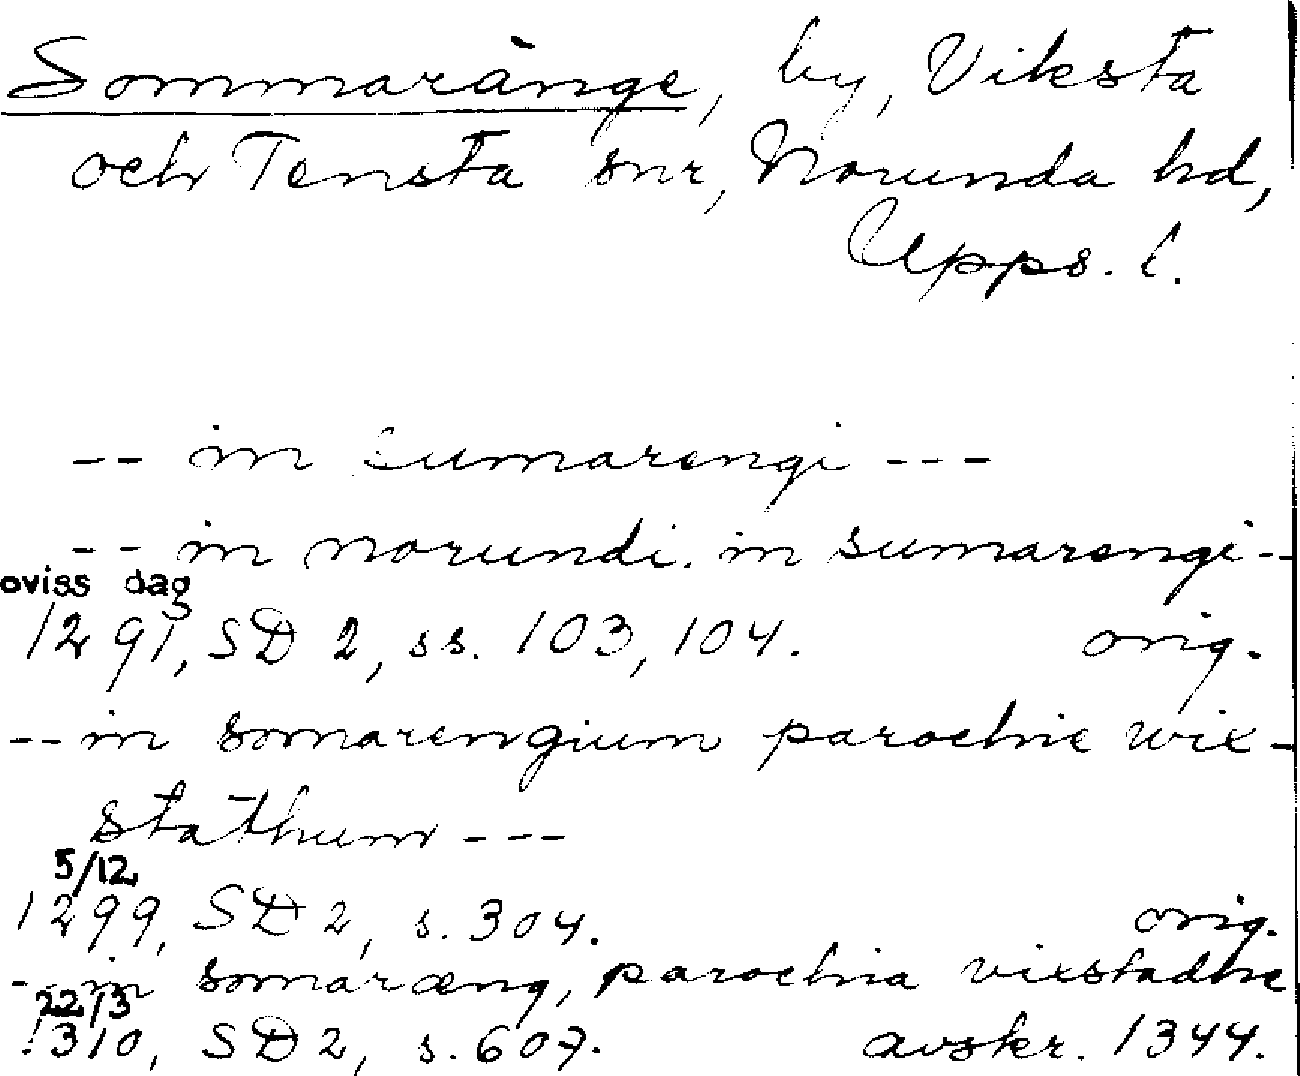 Sommaränge, by, Viksta
och Tensta snr, Norunda hd,
Upps. l.
-- in sumarengi ---
-- in norundi. in sumarengi--
oviss dag
1291, SD 2, ss. 103, 104. orig.
-- in somarengium parochie wix-
stathum ---
5/12
1299, SD 2, s. 304. orig.
-- in somaræng, parochia vixstadhe
22/3
1310, SD 2, s. 607. avskr. 1344.